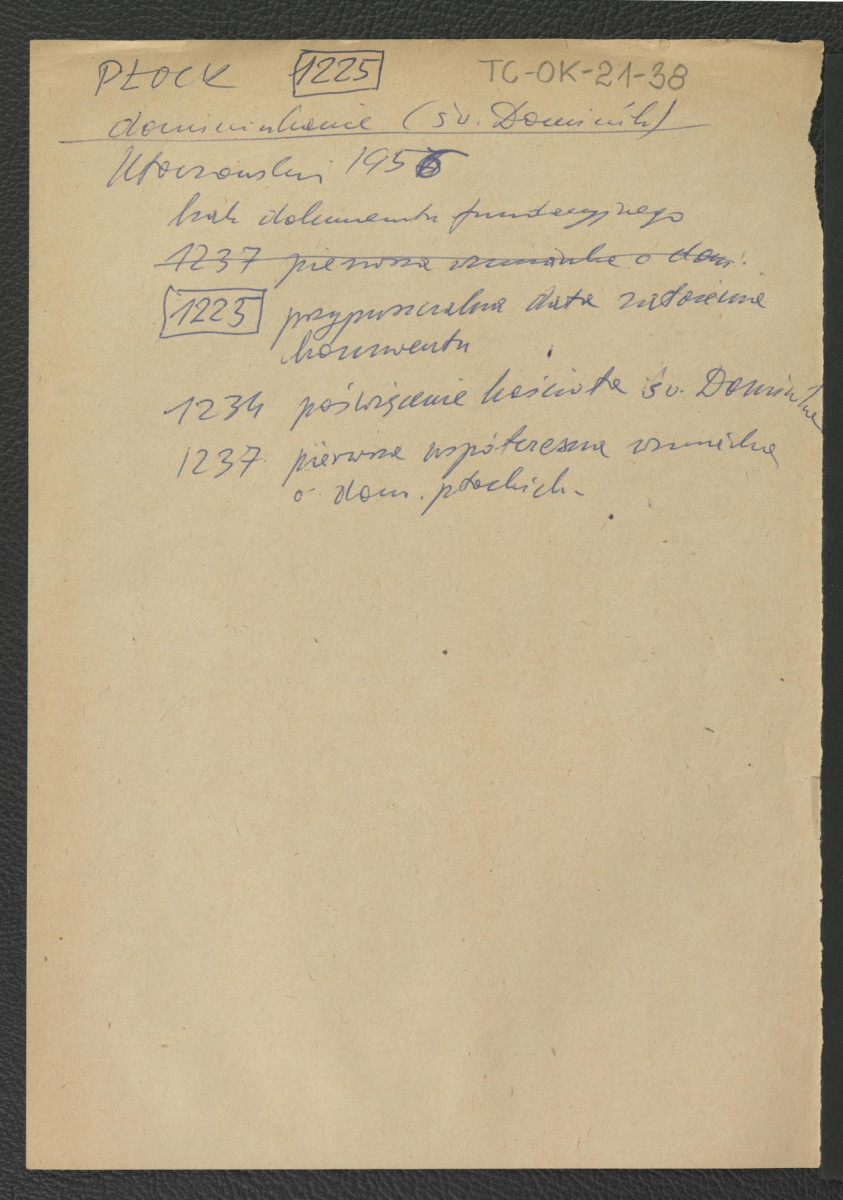 PŁOCK 1225 TC-OK-21-38
dominikanie (św. Dominik)
Kłoczowski 1956
brak dokumentu fundacyjnego
1237 pierwsza wzmianka o dom.
1225 przypuszczalna data założenia
konwentu
1234 poświęcenie kościoła św. Dominika
1237 pierwsza współczesna wzmianka
o dom. płockich.